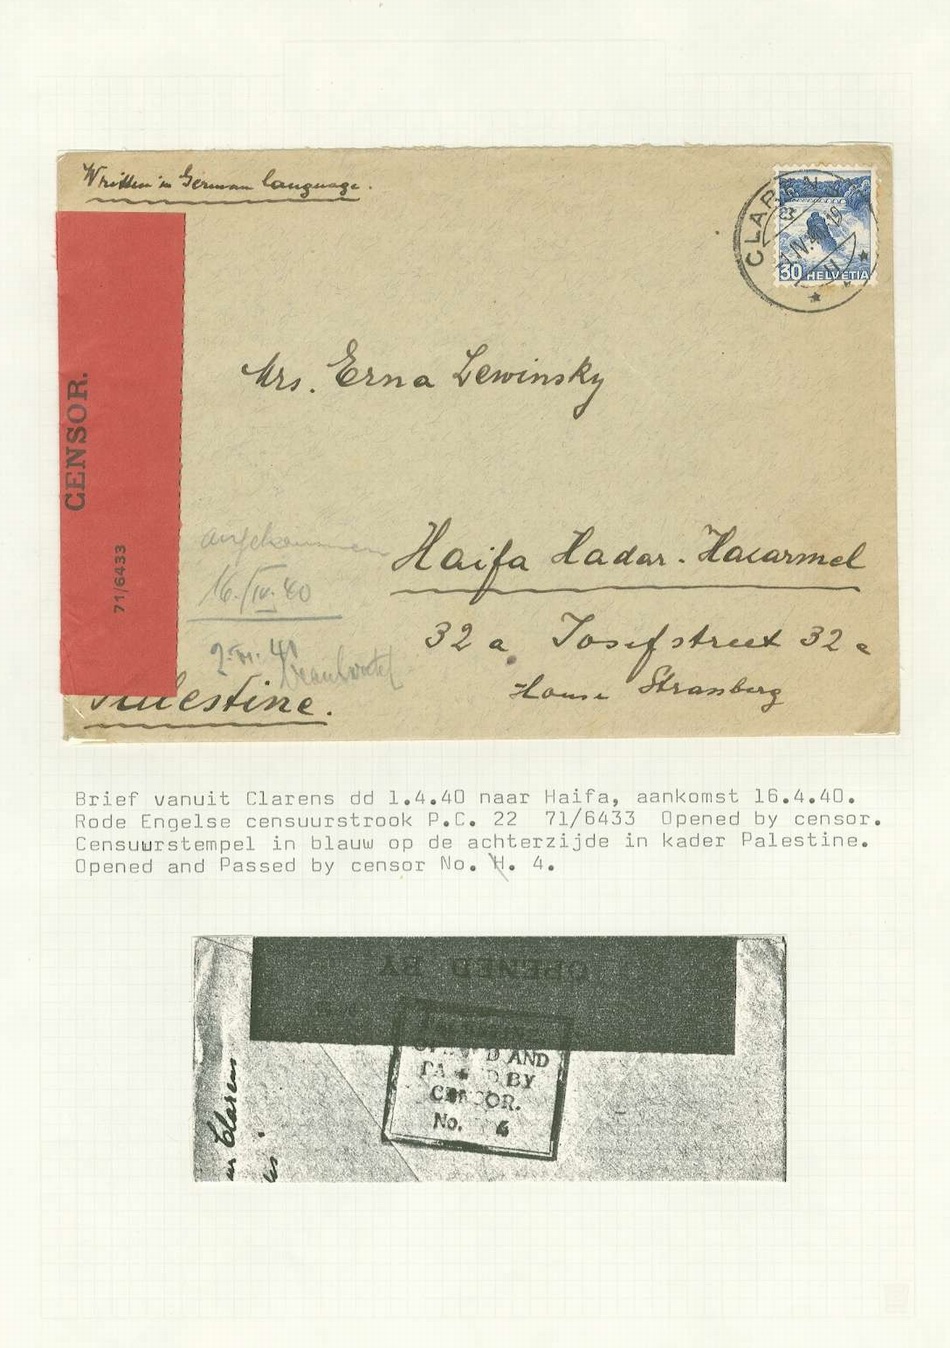 Written in German language.
CLARENS
30 HELVETIA
Mrs. Erna Lewinsky
CENSOR.
71/6433
angekommen
16./IV.40
Haifa Hadar-Hacarmel
32 a Josefstreet 32 a
House Strassberg
Palestine.
Brief vanuit Clarens dd 1.4.40 naar Haifa, aankomst 16.4.40.
Rode Engelse censuurstrook P.C. 22 71/6433 Opened by censor.
Censuurstempel in blauw op de achterzijde in kader Palestine.
Opened and Passed by censor No. H. 4.
OPENED BY
OPENED AND
PASSED BY
CENSOR.
No. 4
Clarens